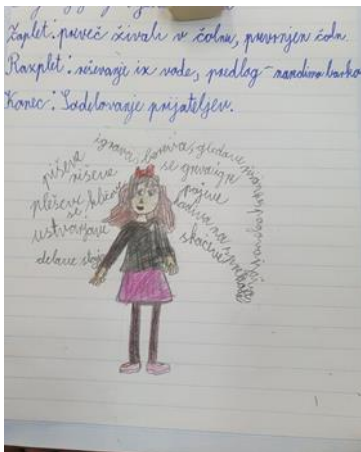 Zaplet: preveč živali v čolnu, prevrnjen čoln.
Razplet: reševanje iz vode, predlog - naredimo barko
Konec: Sodelovanje prijateljev.
piševa
riševa
pleševa se kličeva
ustvarjava
delava
igrava, bereva, gledava
se greva igre
pojeva
hodiva na sprehode
skačeva